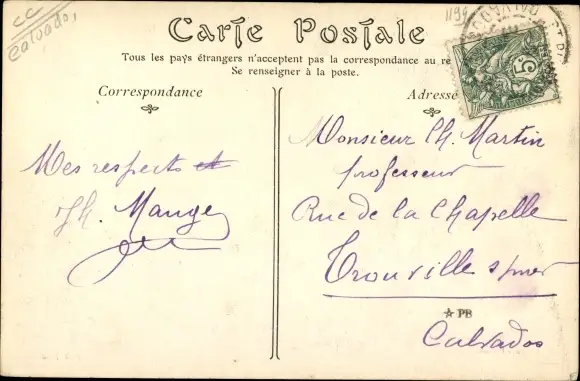 CC
Calvados
1199
Carte Postale
Tous les pays étrangers n'acceptent pas la correspondance au re
Se renseigner à la poste.
Correspondance
Adresse
5
Mes respects et
Th. Mauger
Monsieur Ch. Martin
professeur
Rue de la Chapelle
Trouville s/mer
PB
Calvados